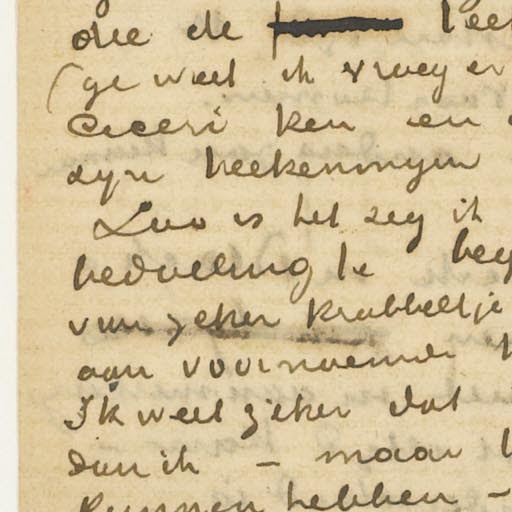 die de
(ge weet ik vroeg er
Ciceri ken en
zyn teekenmyn
Zoo is het zeg ik
bedoeling te
van zeker krabbeltje
aan voornoemde
Ik weet zeker dat
dan ik – maar
kunnen hebben –